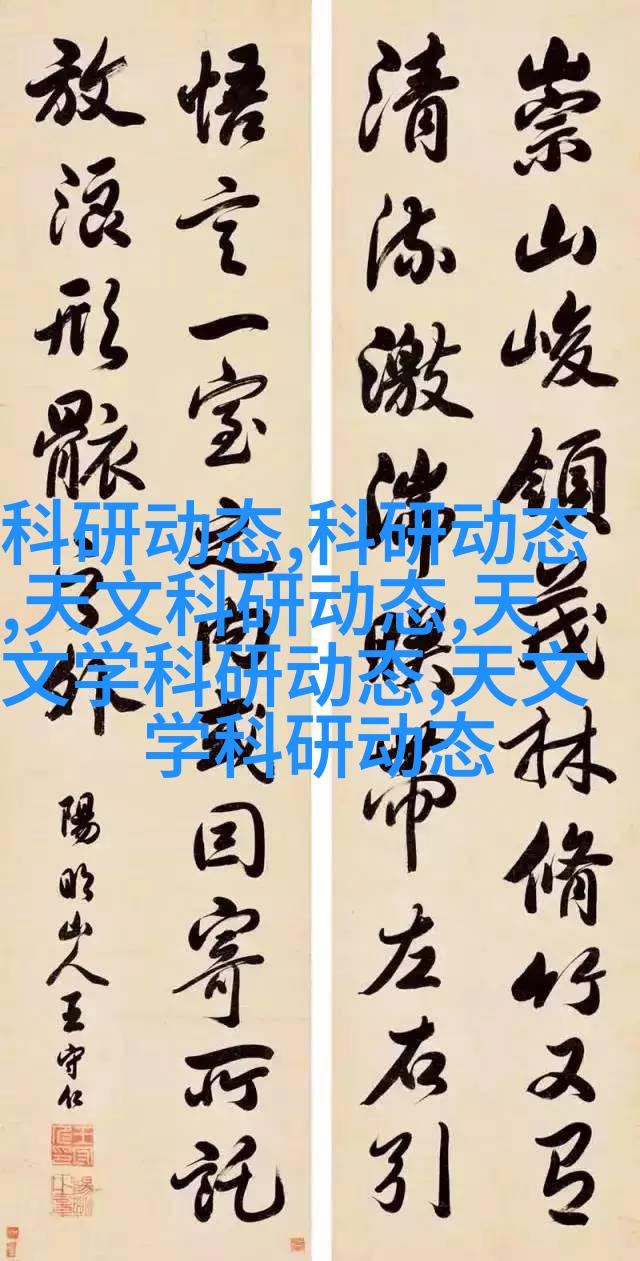 崇山峻領茂林脩竹又有
清流激湍暎帶左右引
悟言一室之內或因寄所託
放浪形骸之外
陽明山人王守仁
科研动态,科研动态
,天文科研动态,天
文学科研动态,天文
学科研动态